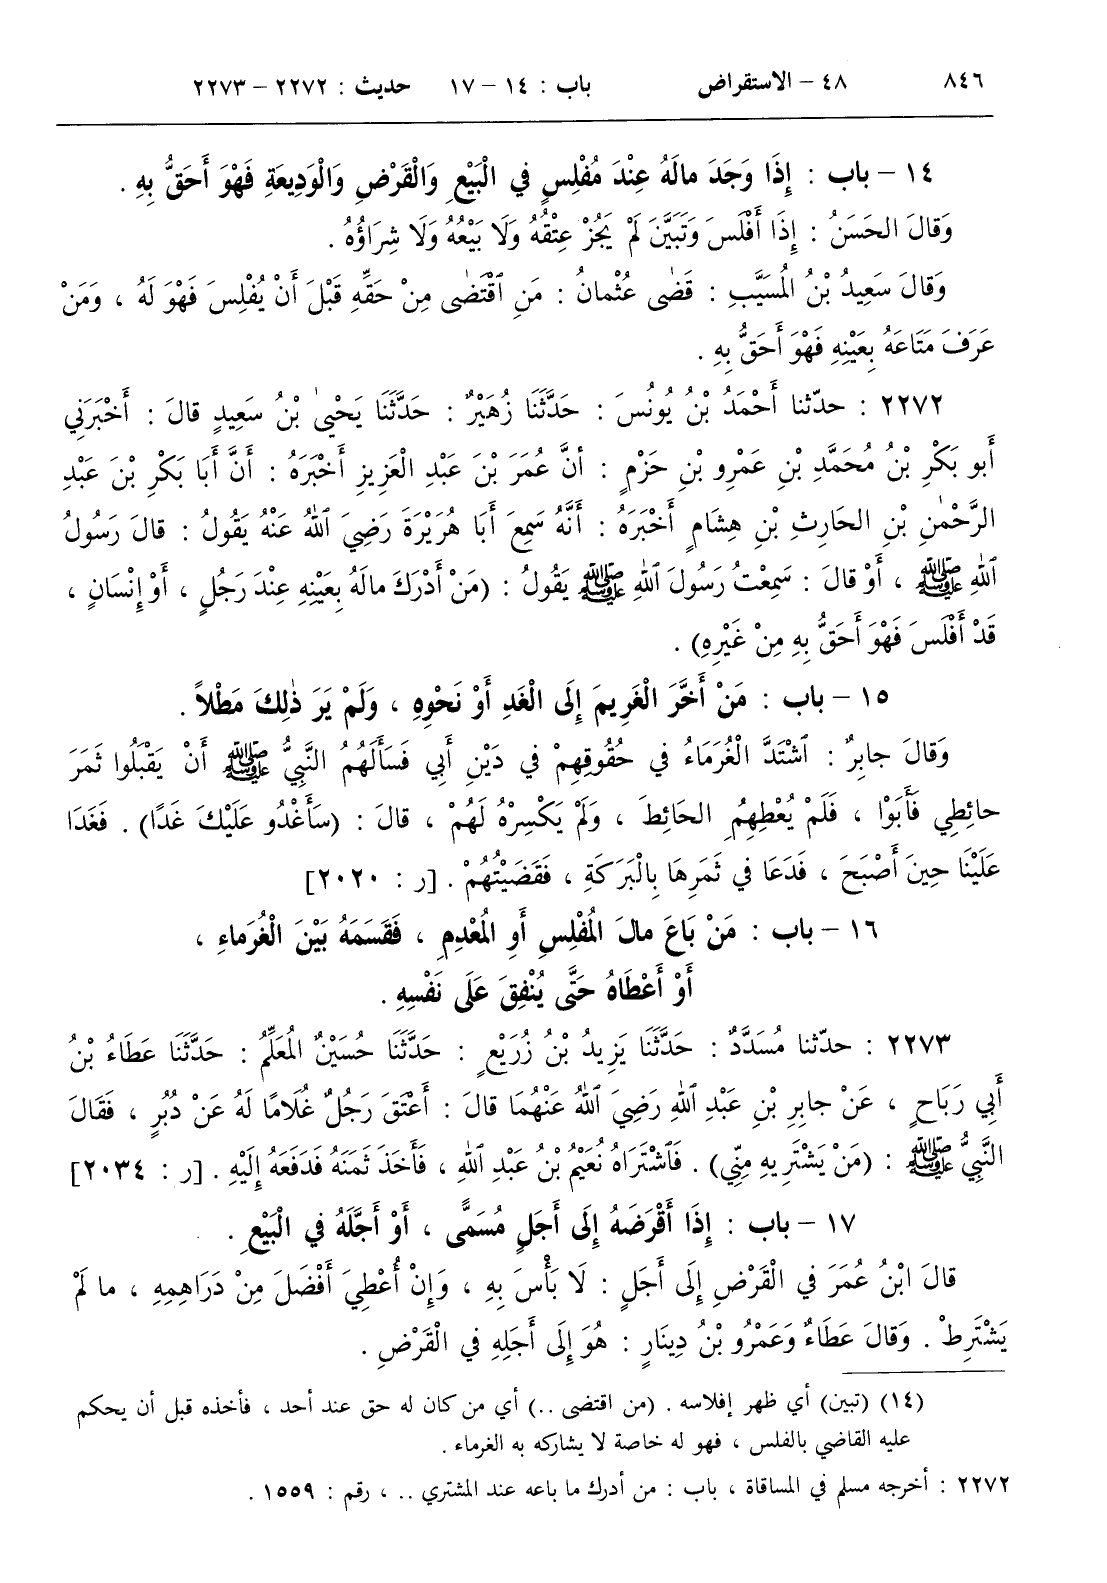 ٨٤٦ ٤٨ – الاستقراض باب : ١٤ – ١٧ حديث : ٢٢٧٢ – ٢٢٧٣
١٤ – باب : إِذَا وَجَدَ مالَهُ عِنْدَ مُفْلِسٍ فِي الْبَيْعِ وَالْقَرْضِ وَالْوَدِيعَةِ فَهْوَ أَحَقُّ بِهِ .
وَقالَ الحَسَنُ : إِذَا أَفْلَسَ وَتَبَيَّنَ لَمْ يَجُزْ عِتْقُهُ وَلَا بَيْعُهُ وَلَا شِرَاؤُهُ .
وَقالَ سَعِيدُ بْنُ الْمُسَيَّبِ : قَضٰى عُثْمانُ : مَنِ ٱقْتَضٰى مِنْ حَقِّهِ قَبْلَ أَنْ يُفْلِسَ فَهْوَ لَهُ ، وَمَنْ
عَرَفَ مَتَاعَهُ بِعَيْنِهِ فَهْوَ أَحَقُّ بِهِ .
٢٢٧٢ : حدّثنا أَحْمَدُ بْنُ يُونُسَ : حَدَّثَنَا زُهَيْرٌ : حَدَّثَنَا يَحْيىٰ بْنُ سَعِيدٍ قالَ : أَخْبَرَنِي
أَبو بَكْرِ بْنُ مُحَمَّدِ بْنِ عَمْرِو بْنِ حَزْمٍ : أنَّ عُمَرَ بْنَ عَبْدِ الْعَزِيزِ أَخْبَرَهُ : أَنَّ أَبَا بَكْرِ بْنَ عَبْدِ
الرَّحْمٰنِ بْنِ الحَارِثِ بْنِ هِشَامٍ أَخْبَرَهُ : أَنَّهُ سَمِعَ أَبَا هُرَيْرَةَ رَضِيَ ٱللهُ عَنْهُ يَقُولُ : قالَ رَسُولُ
ٱللهِ ﷺ ، أَوْ قالَ : سَمِعْتُ رَسُولَ ٱللهِ ﷺ يَقُولُ : (مَنْ أَدْرَكَ مالَهُ بِعَيْنِهِ عِنْدَ رَجُلٍ ، أَوْ إِنْسَانٍ ،
قَدْ أَفْلَسَ فَهْوَ أَحَقُّ بِهِ مِنْ غَيْرِهِ) .
١٥ – باب : مَنْ أَخَّرَ الْغَرِيمَ إِلَى الْغَدِ أَوْ نَحْوِهِ ، وَلَمْ يَرَ ذٰلِكَ مَطْلاً .
وَقالَ جابِرٌ : ٱشْتَدَّ الْغُرَمَاءُ فِي حُقُوقِهِمْ فِي دَيْنِ أَبِي فَسَأَلَهُمُ النَّبِيُّ ﷺ أَنْ يَقْبَلُوا ثَمَرَ
حائِطِي فَأَبَوْا ، فَلَمْ يُعْطِهِمِ الحَائِطَ ، وَلَمْ يَكْسِرْهُ لَهُمْ ، قالَ : (سَأَغْدُو عَلَيْكَ غَدًا) . فَغَدَا
عَلَيْنَا حِينَ أَصْبَحَ ، فَدَعَا فِي ثَمَرِهَا بِالْبَرَكَةِ ، فَقَضَيْتُهُمْ . [ر : ٢٠٢٠]
١٦ – باب : مَنْ بَاعَ مالَ الْمُفْلِسِ أَوِ الْمُعْدِمِ ، فَقَسَمَهُ بَيْنَ الْغُرَماءِ ،
أَوْ أَعْطَاهُ حَتَّى يُنْفِقَ عَلَى نَفْسِهِ .
٢٢٧٣ : حدّثنا مُسَدَّدٌ : حَدَّثَنَا يَزِيدُ بْنُ زُرَيْعٍ : حَدَّثَنَا حُسَيْنٌ الْمُعَلِّمُ : حَدَّثَنَا عَطَاءُ بْنُ
أَبِي رَبَاحٍ ، عَنْ جابِرِ بْنِ عَبْدِ ٱللهِ رَضِيَ ٱللهُ عَنْهُمَا قالَ : أَعْتَقَ رَجُلٌ غُلَامًا لَهُ عَنْ دُبُرٍ ، فَقَالَ
النَّبِيُّ ﷺ : (مَنْ يَشْتَرِيهِ مِنِّي) . فَٱشْتَرَاهُ نُعَيْمُ بْنُ عَبْدِ ٱللهِ ، فَأَخَذَ ثَمَنَهُ فَدَفَعَهُ إِلَيْهِ . [ر : ٢٠٣٤]
١٧ – باب : إِذَا أَقْرَضَهُ إِلَى أَجَلٍ مُسَمًّى ، أَوْ أَجَّلَهُ فِي الْبَيْعِ .
قالَ ابْنُ عُمَرَ فِي الْقَرْضِ إِلَى أَجَلٍ : لَا بَأْسَ بِهِ ، وَإِنْ أُعْطِيَ أَفْضَلَ مِنْ دَرَاهِمِهِ ، ما لَمْ
يَشْتَرِطْ . وَقالَ عَطَاءٌ وَعَمْرُو بْنُ دِينَارٍ : هُوَ إِلَى أَجَلِهِ فِي الْقَرْضِ .
(١٤) (تبين) أي ظهر إفلاسه . (من اقتضى ..) أي من كان له حق عند أحد ، فأخذه قبل أن يحكم
عليه القاضي بالفلس ، فهو له خاصة لا يشاركه به الغرماء .
٢٢٧٢ : أخرجه مسلم في المساقاة ، باب : من أدرك ما باعه عند المشتري .. ، رقم : ١٥٥٩ .